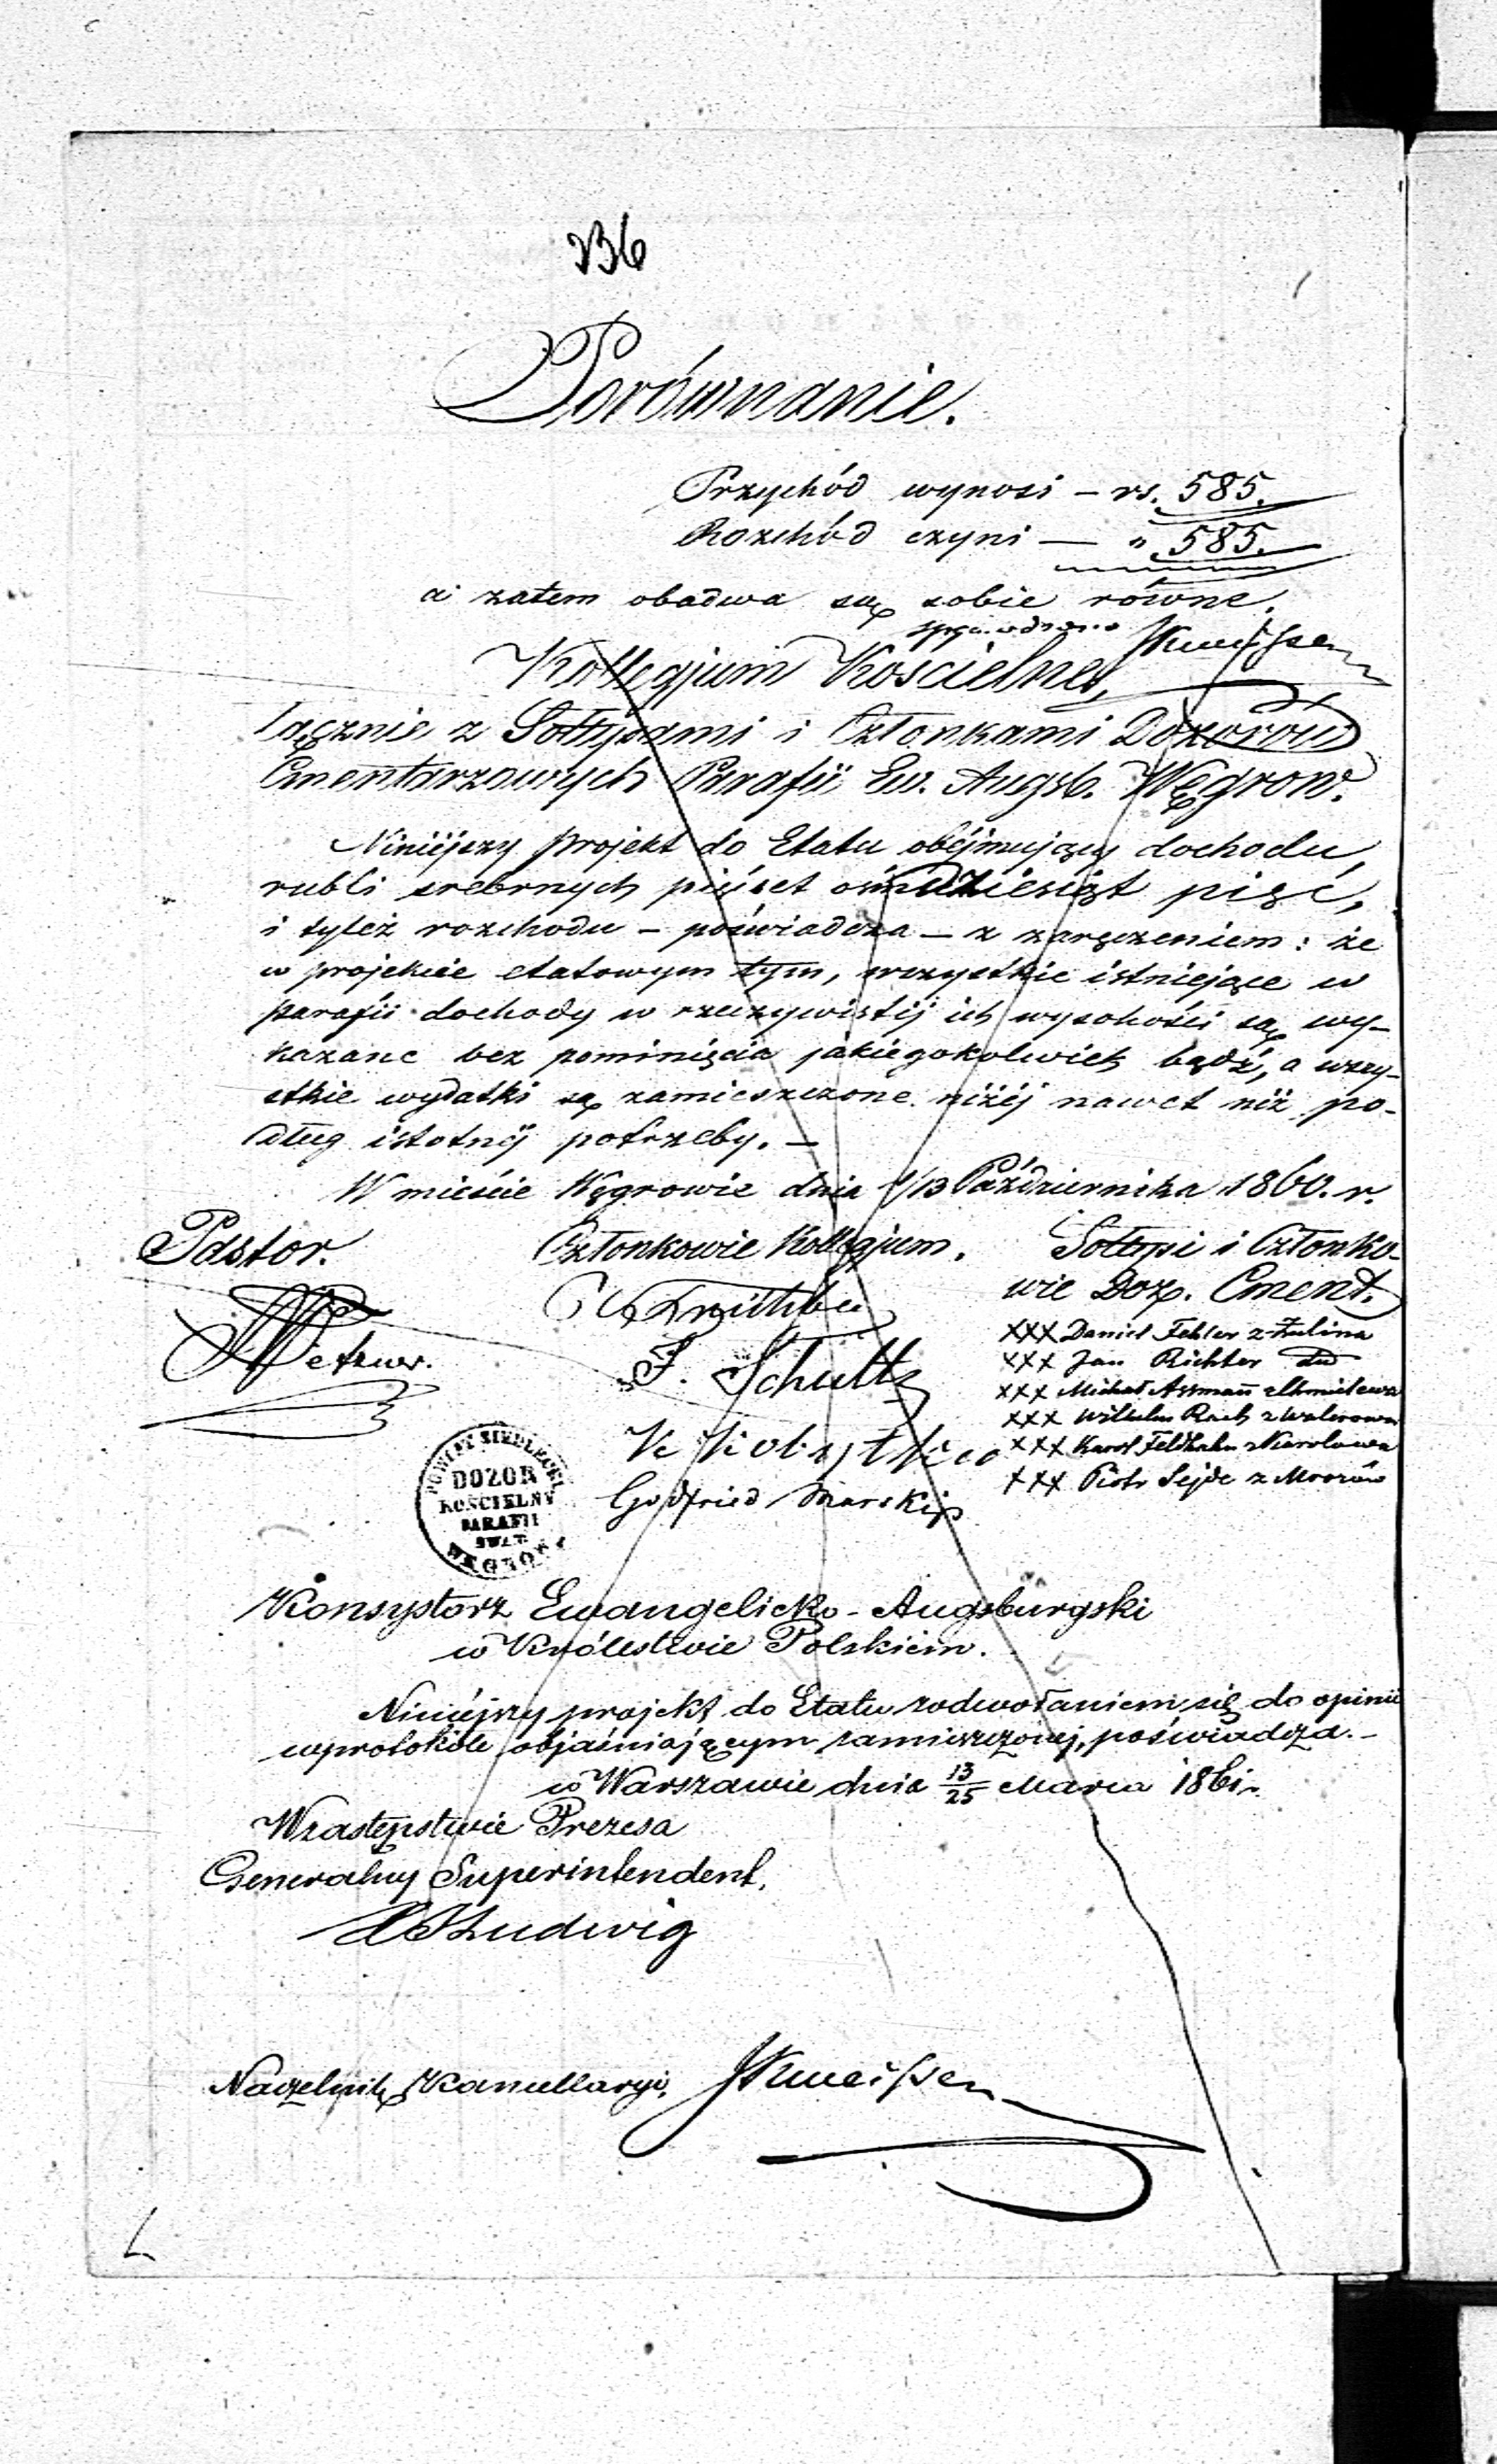 236
Porównanie.
Przychód wynosi — rs. 585.
Rozchód czyni — " 585.
a zatem obadwa są sobie równe.
Kollegjum Kościelne,
łącznie z Sołtysami i Członkami Dozorów
Cmentarzowych Parafii Ew. Augsb. Węgrow.
Niniejszy projekt do Etatu obejmujący dochodu,
rubli srebrnych pięćset ośmdziesiąt pięć,
i tyleż rozchodu — poświadcza — z zaręczeniem: że
w projekcie etatowym tym, wszystkie istniejące w
parafii dochody w rzeczywistej ich wysokości są wy-
kazane bez pominięcia jakiegokolwiek bądź, a wszy-
stkie wydatki są zamieszczone niżej nawet niż po-
dług istotnej potrzeby. —
W mieście Węgrowie dnia 1/13 Października 1860. r.
Pastor. Członkowie Kollegjum. Sołtysi i Członko-
wie Doz. Cment.
XXX Daniel Fehler z
XXX Jan Richter
J. Schultz
XXX Michał Assmann
XXX Wilhelm Rach z
XXX Karol Feldhahn z Karolowa
XXX Piotr Sejde z
Godfried
POWIAT SIEDLECKI
DOZÓR
KOŚCIELNY
PARAFII
EWAN.
WĘGRÓW
Konsystorz Ewangelicko-Augsburgski
w Królestwie Polskiem.
Niniejszy projekt do Etatu z odwołaniem się do opinii
w protokóle objaśniającym zamieszczonej, poświadcza. —
w Warszawie dnia 13/25 Marca 1861 r.
W zastępstwie Prezesa
Generalny Superintendent,
Ludwig
Naczelnik Kancellaryi,